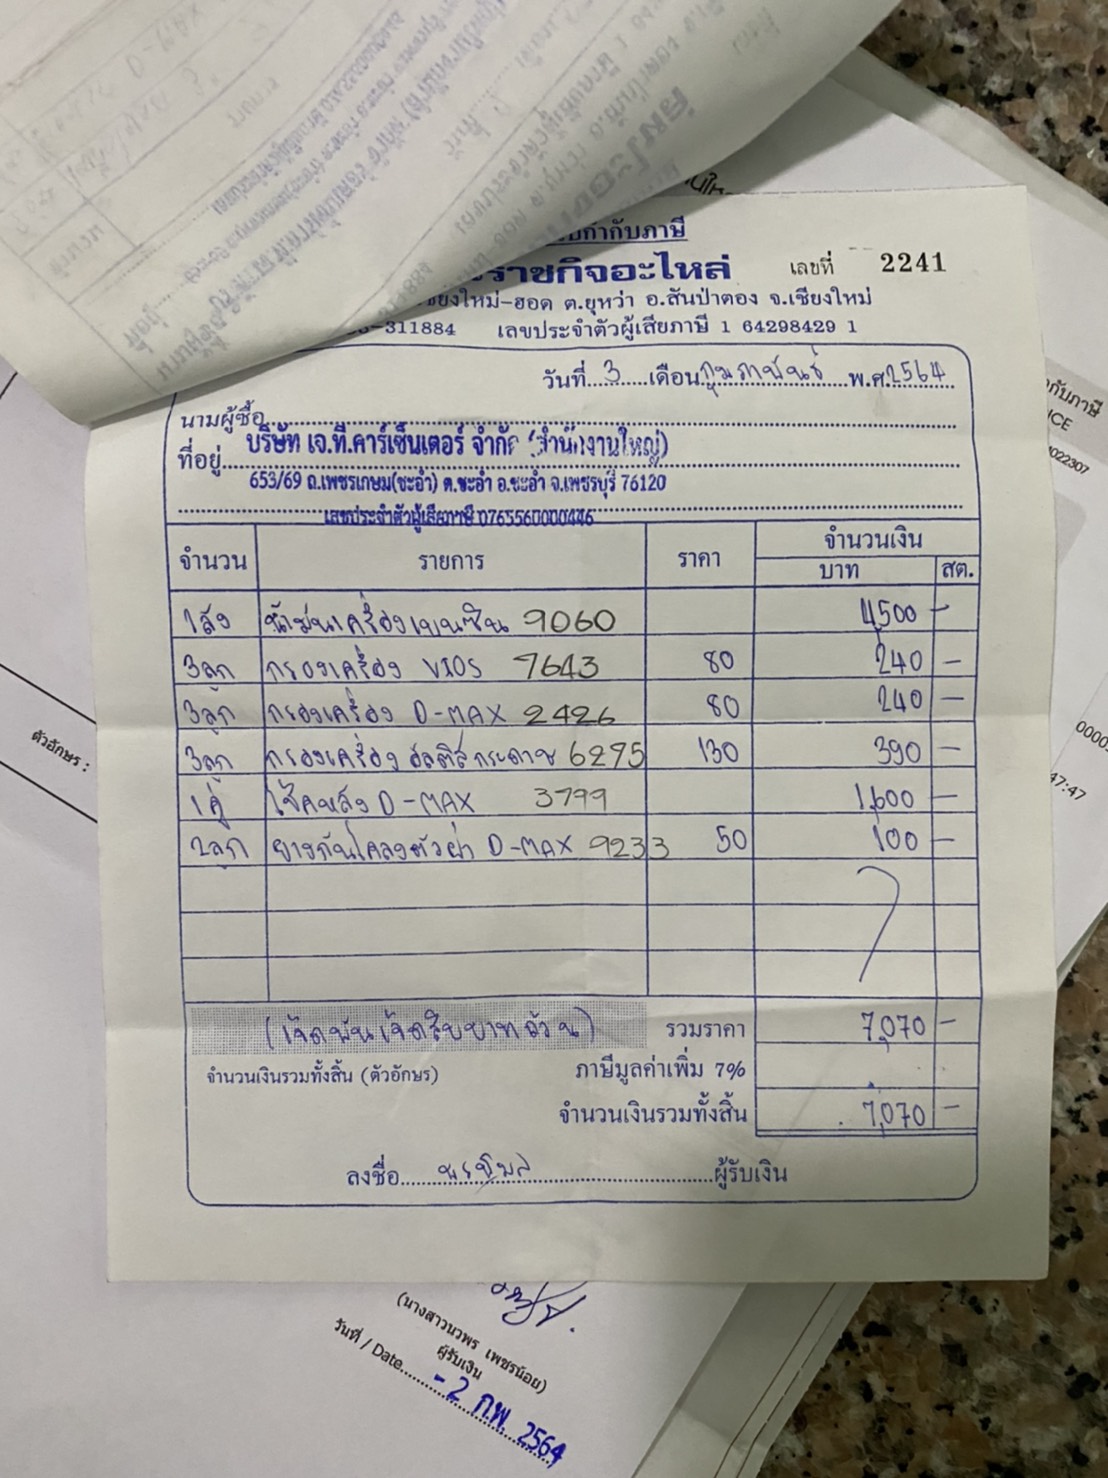 กำกับภาษี
ราชกิจอะไหล่ เลขที่ 2241
เชียงใหม่-ฮอด ต.ยุหว่า อ.สันป่าตอง จ.เชียงใหม่
-311884 เลขประจำตัวผู้เสียภาษี 1 64298429 1
วันที่ 3 เดือน กุมภาพันธ์ พ.ศ. 2564
นามผู้ซื้อ
บริษัท เจ.ที.คาร์เซ็นเตอร์ จำกัด (สำนักงานใหญ่)
ที่อยู่
653/69 ถ.เพชรเกษม(ชะอำ) ต.ชะอำ อ.ชะอำ จ.เพชรบุรี 76120
เลขประจำตัวผู้เสียภาษี 0765560000446
จำนวน รายการ ราคา จำนวนเงิน
บาท สต.
1ลัง น้ำมันเครื่องเบนซิน 9060 4,500 -
3ลูก กรองเครื่อง VIOS 7643 80 240 -
3ลูก กรองเครื่อง D-MAX 2426 80 240 -
3ลูก กรองเครื่อง อัลติสกระดาษ 6275 130 390 -
1คู่ โช้คหลัง D-MAX 3799 1,600 -
2ลูก ยางกันโคลงตัวผ่า D-MAX 9233 50 100 -
(เจ็ดพันเจ็ดสิบบาทถ้วน) รวมราคา 7,070 -
จำนวนเงินรวมทั้งสิ้น (ตัวอักษร) ภาษีมูลค่าเพิ่ม 7%
จำนวนเงินรวมทั้งสิ้น 7,070 -
ลงชื่อ ผู้รับเงิน
(นางสาวนวพร เพชรน้อย)
ผู้รับเงิน
วันที่ / Date
- 2 ก.พ. 2564
ตัวอักษร :
กำกับภาษี
ICE
022307
47:47